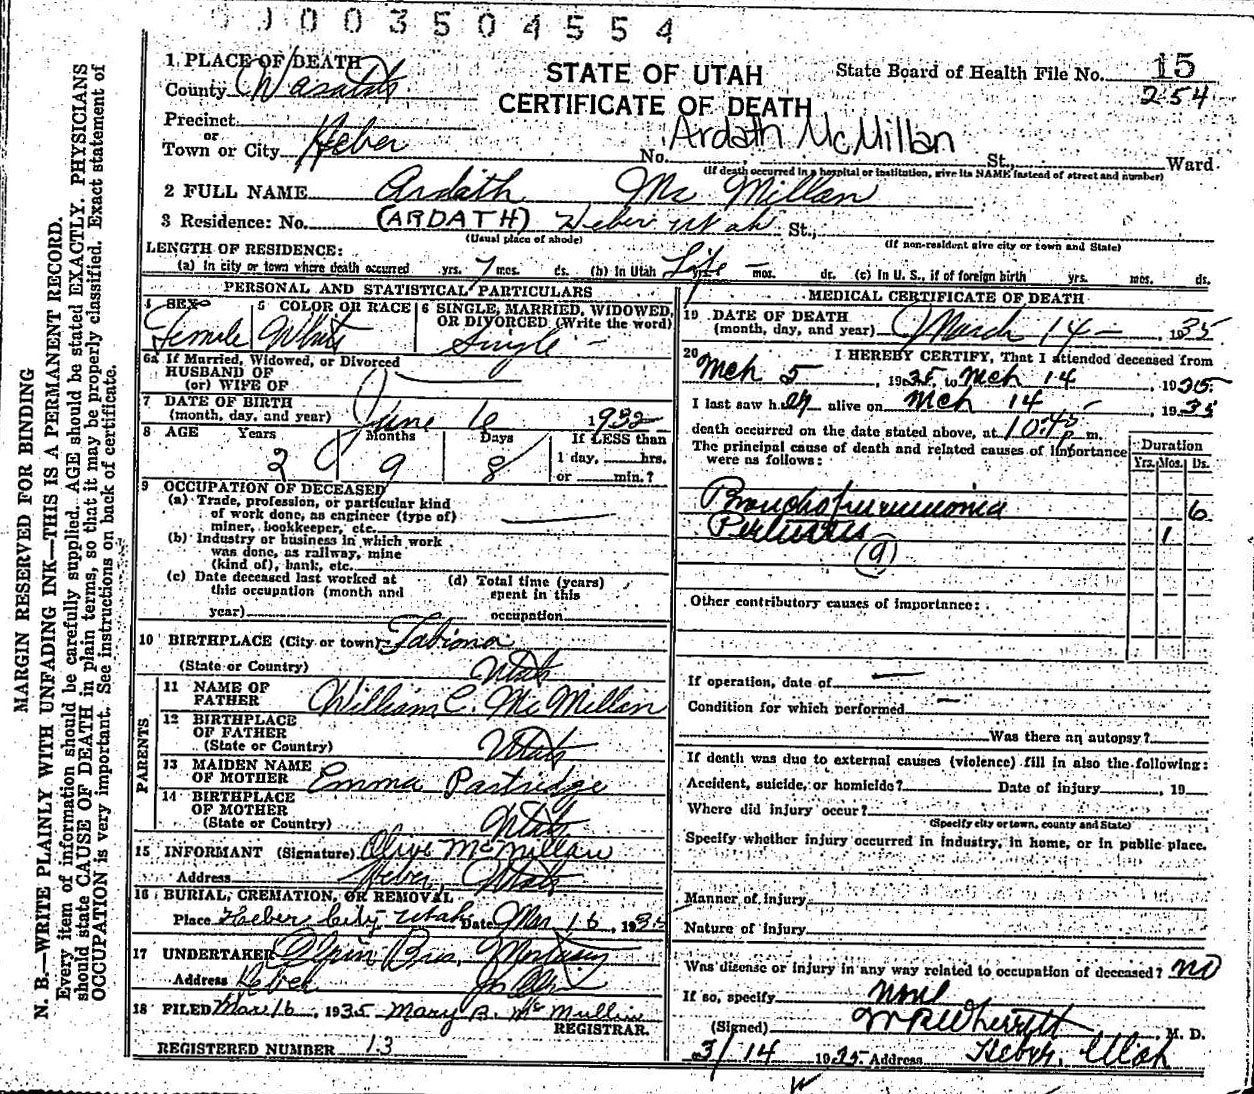 0 0 0 0 3 5 0 4 5 5 4
MARGIN RESERVED FOR BINDING
N. B.—WRITE PLAINLY WITH UNFADING INK—THIS IS A PERMANENT RECORD.
Every item of information should be carefully supplied. AGE should be stated EXACTLY. PHYSICIANS
should state CAUSE OF DEATH in plain terms, so that it may be properly classified. Exact statement of
OCCUPATION is very important. See instructions on back of certificate.
1 PLACE OF DEATH
County Wasatch
Precinct
or
Town or City Heber
STATE OF UTAH
CERTIFICATE OF DEATH
State Board of Health File No. 15
254
Ardath McMillan
No. St., Ward
(If death occurred in a hospital or institution, give its NAME instead of street and number)
2 FULL NAME Ardath Mc Millan
3 Residence: No. (ARDATH) Heber Utah St.,
(Usual place of abode) (If non-resident give city or town and State)
LENGTH OF RESIDENCE:
(a) In city or town where death occurred yrs. 7 mos. ds. (b) In Utah Life yrs. — mos. ds. (c) In U. S., if of foreign birth yrs. mos. ds.
PERSONAL AND STATISTICAL PARTICULARS
4 SEX 5 COLOR OR RACE 6 SINGLE, MARRIED, WIDOWED, OR DIVORCED (Write the word)
Female White Single —
6a If Married, Widowed, or Divorced
HUSBAND OF
(or) WIFE OF
7 DATE OF BIRTH
(month, day, and year) June 6 1932
8 AGE Years Months Days If LESS than
1 day, hrs.
2 9 8 or min.?
9 OCCUPATION OF DECEASED
(a) Trade, profession, or particular kind
of work done, as engineer (type of)
miner, bookkeeper, etc.
(b) Industry or business in which work
was done, as railway, mine
(kind of), bank, etc.
(c) Date deceased last worked at
this occupation (month and
year)
(d) Total time (years)
spent in this
occupation
10 BIRTHPLACE (City or town) Tabiona
(State or Country) Utah
PARENTS
11 NAME OF
FATHER William C. Mc Millan
12 BIRTHPLACE
OF FATHER
(State or Country) Utah
13 MAIDEN NAME
OF MOTHER Emma Partridge
14 BIRTHPLACE
OF MOTHER
(State or Country) Utah
15 INFORMANT (Signature) Olive McMillan
Address Heber, Utah
16 BURIAL, CREMATION, OR REMOVAL
Place Heber City, Utah Date Mar 16, 1935
17 UNDERTAKER Olpin Bros. Mortuary
Address Heber
18 FILED Mar 16, 1935 Mary B. McMullin
REGISTRAR.
REGISTERED NUMBER 13
MEDICAL CERTIFICATE OF DEATH
19 DATE OF DEATH
(month, day, and year) March 14 —, 1935
20 I HEREBY CERTIFY, That I attended deceased from
Mch 5, 1935, to Mch 14, 1935
I last saw her alive on Mch 14, 1935
death occurred on the date stated above, at 10:45 p m.
The principal cause of death and related causes of importance
were as follows:
Duration
Yrs. Mos. Ds.
Bronchopneumonia 6
Pertussis 1
(9)
Other contributory causes of importance:
If operation, date of —
Condition for which performed —
Was there an autopsy?
If death was due to external causes (violence) fill in also the following:
Accident, suicide, or homicide? Date of injury, 19
Where did injury occur?
(Specify city or town, county and State)
Specify whether injury occurred in industry, in home, or in public place.
Manner of injury
Nature of injury
Was disease or injury in any way related to occupation of deceased? no
If so, specify none
(Signed) W R Wherritt M. D.
3/14 1935 Address Heber, Utah